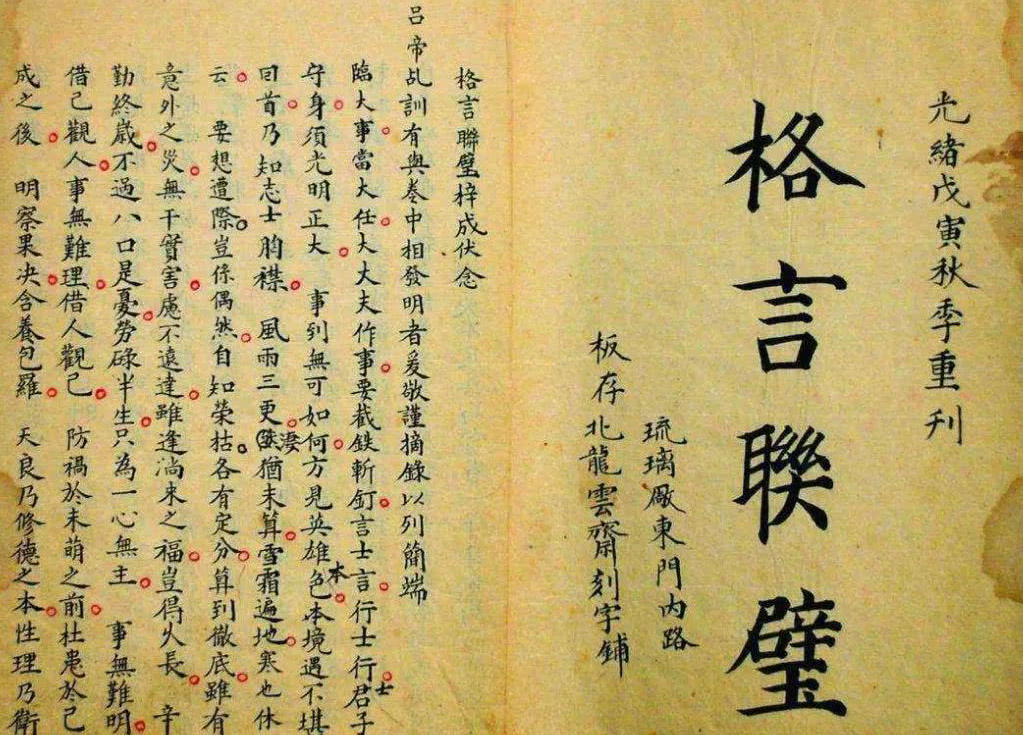 光緒戊寅秋季重刊
格言聯璧
琉璃厰東門內路
板存北龍雲齋刻字鋪
格言聯璧梓成伏念
呂帝乩訓有與卷中相發明者爰敬謹摘錄以列簡端
臨大事當大任大大夫作事要截鉄斬釘言士言行士行君子士
守身須光明正大 事到無可如何方見英雄本色本境遇不堪
回首乃知志士胸襟 風雨三更淒猶未算雪霜遍地寒也休
云 要想遭際豈係偶然自知榮枯各有定分算到徹底雖有
意外之災無干實害慮不遠達雖逢淌来之福豈得久長 辛
勤終歲不過八口是憂勞碌半生只為一心無主 事無難明
借己觀人事無難理借人觀己 防禍於未萌之前杜患於己
成之後 明察果决含養包羅 天良乃修德之本性理乃衛